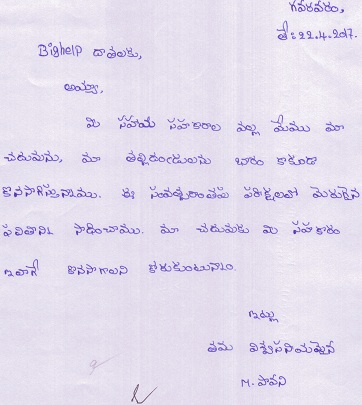 గవరవరం,
తే: 22.4.2017.
Bighelp దాతలకు,
అయ్యా,
మీ సహాయ సహకారాల వల్ల మేము మా
చదువును, మా తల్లిదండ్రులను భారం కాకుండా
కొనసాగిస్తున్నాము. ఈ సంవత్సరాంతపు పరీక్షలలో మెరుగైన
ఫలితాలు సాధించాము. మా చదువుకు మీ సహకారం
ఇలాగే కొనసాగాలని కోరుకుంటున్నాం.
ఇట్లు
తమ విశ్వసనీయమైన
M. పావని